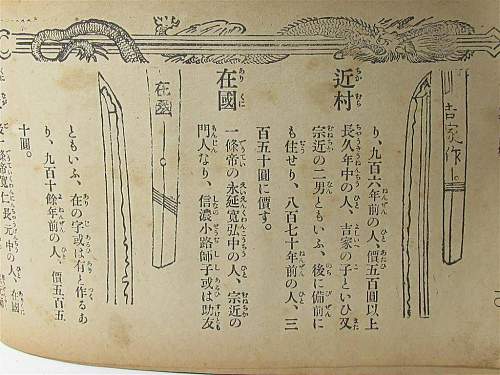 吉家作
り、九百六年前の人、價五百圓以上
近村
長久年中の人、吉家の子といひ又
宗近の二男ともいふ、後に備前に
も住せり、八百七十年前の人、三
百五十圓に價す。
在國
一條帝の永延寛弘中の人、宗近の
門人なり、信濃小路師子或は助友
在國
ともいふ、在の字或は有と作るあ
り、九百十餘年前の人、價五百五
十圓。
一條帝寛仁長元中の人、在國